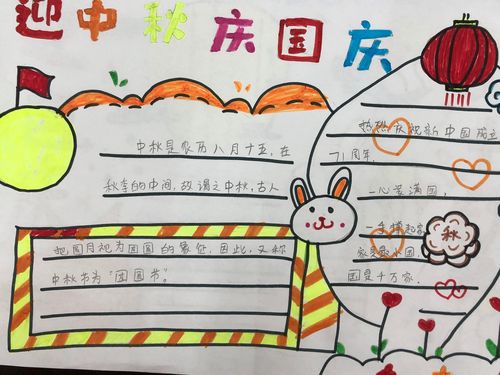 迎中秋庆国庆
中秋是农历八月十五,在
秋季的中间,故谓之中秋,古人
把圆月视为团圆的象征,因此,又称
中秋节为“团圆节”。
热烈庆祝新中国成立
71周年
一心装满国,
一手撑起家
家是最小国,
国是千万家.
秋